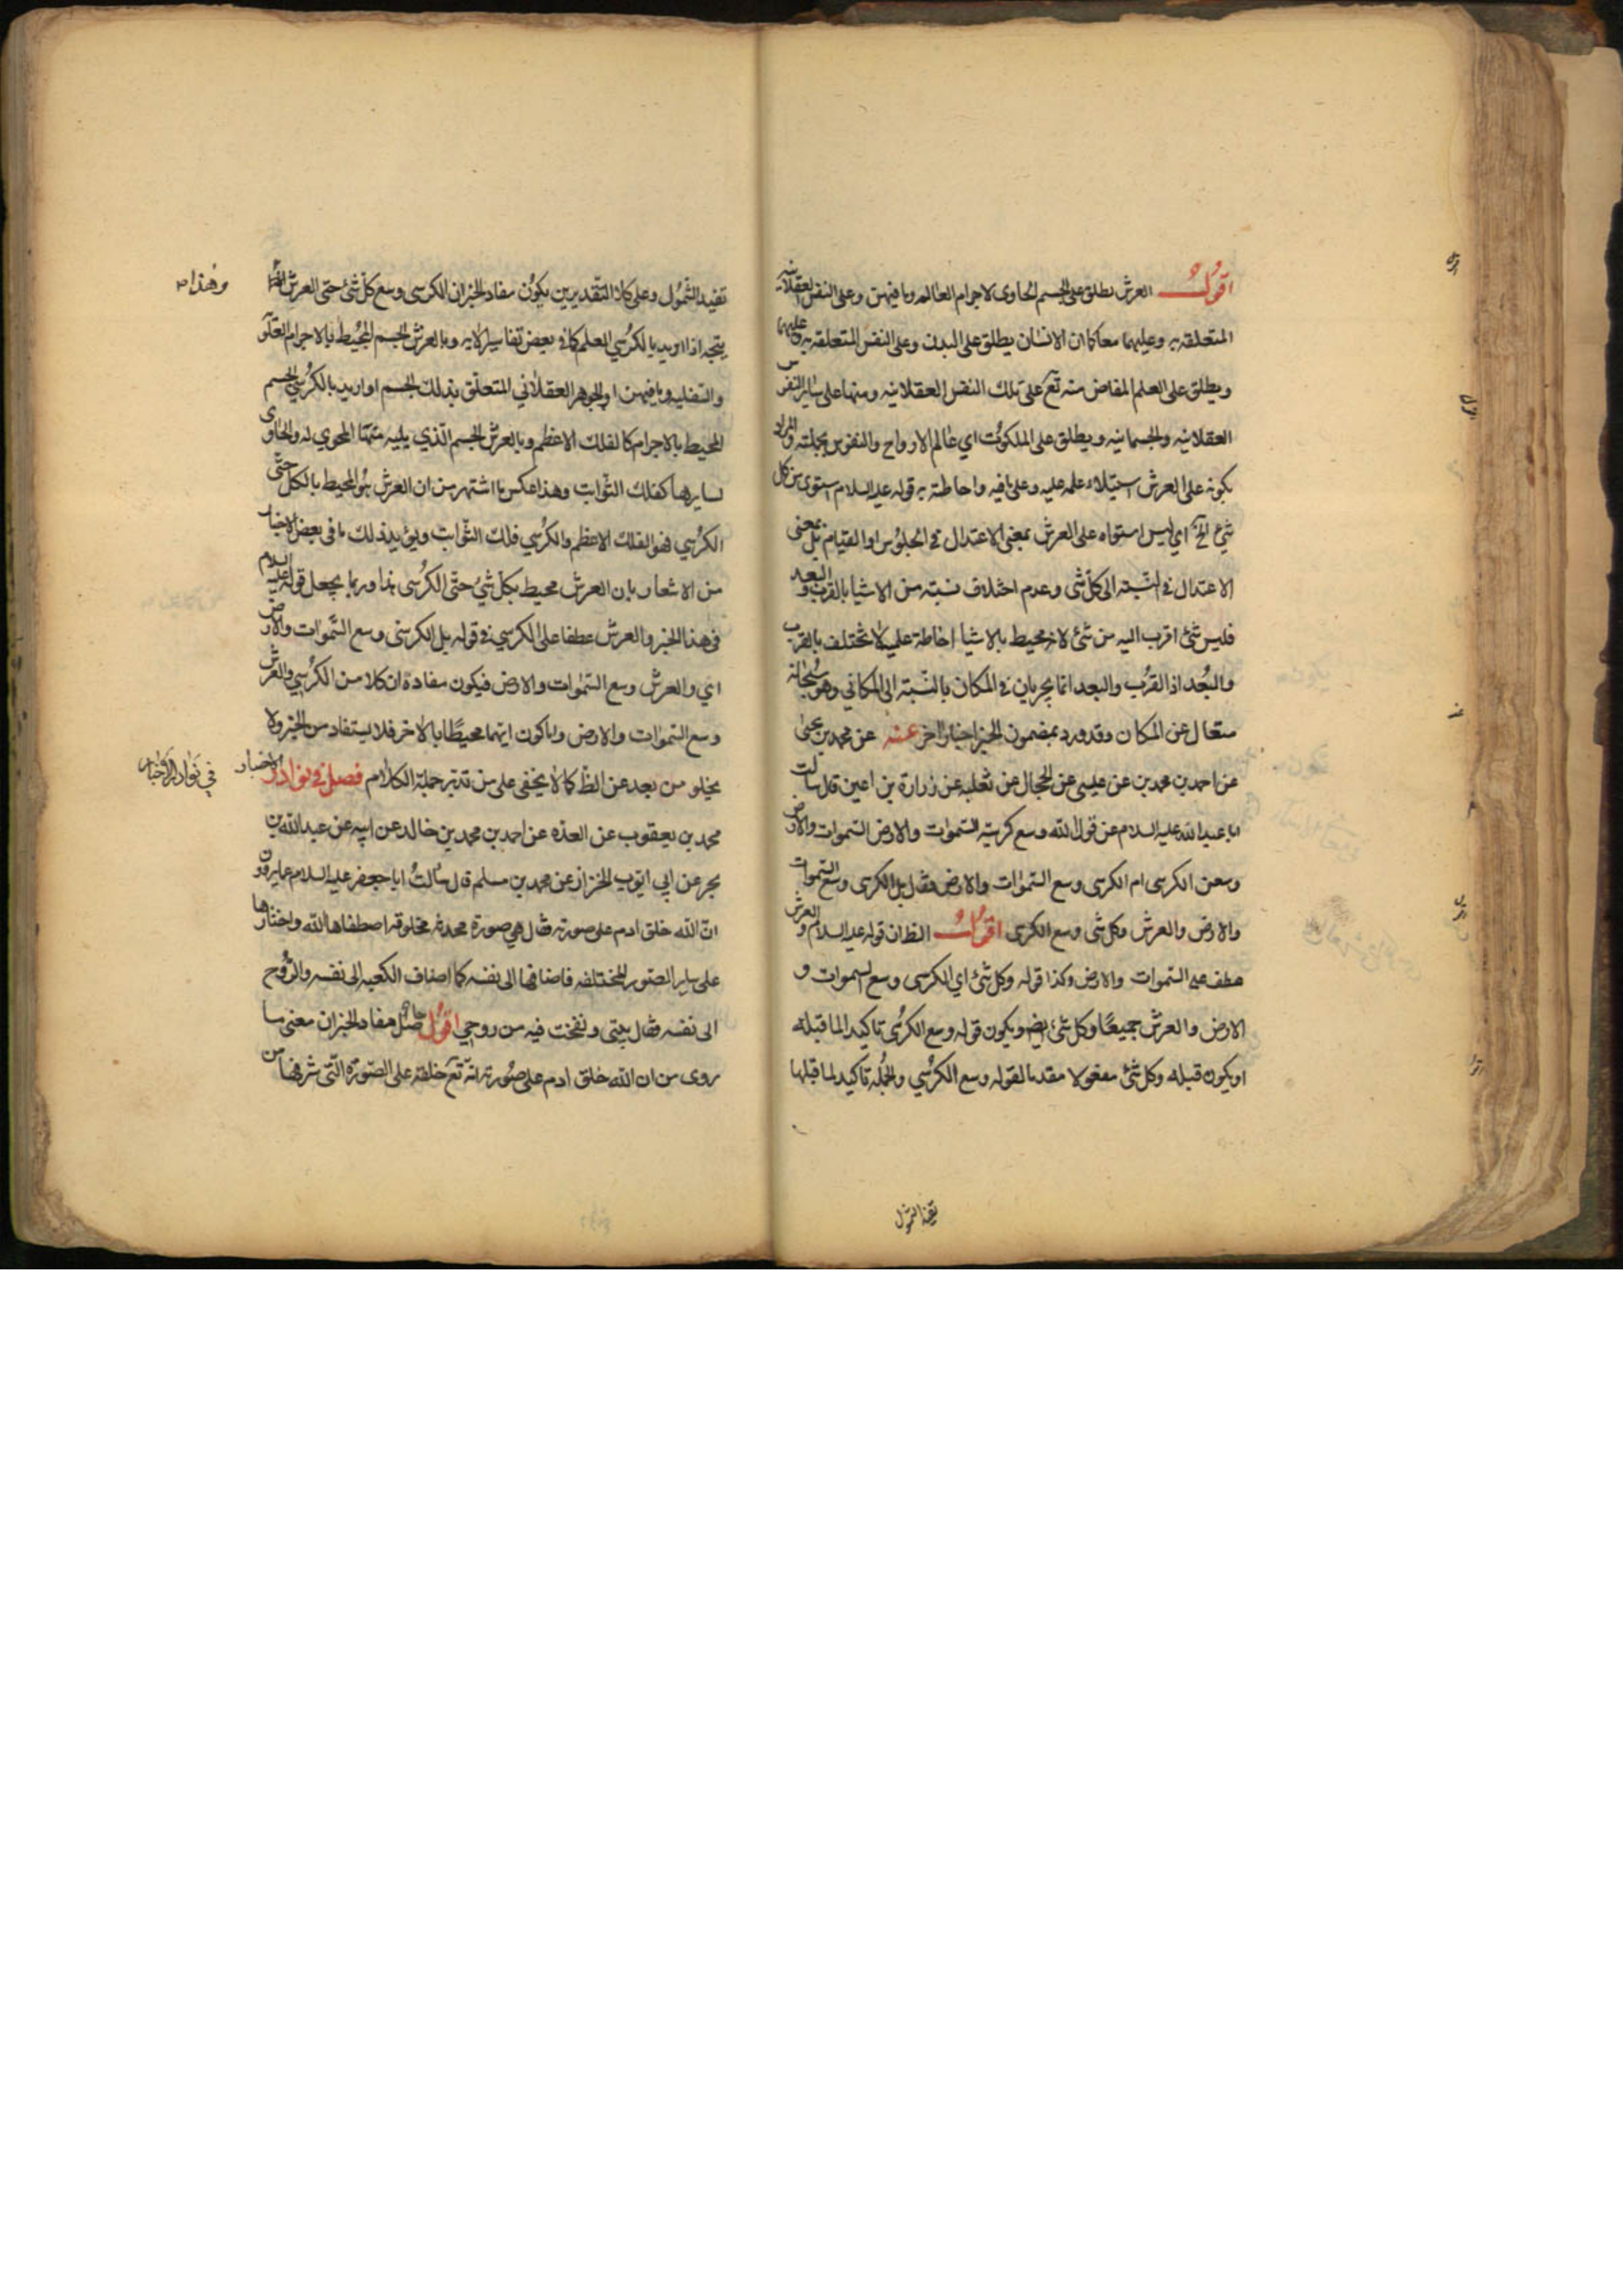 اقول العرش يطلق على الجسم الحاوى لاجرام العالم وما فيهن وعلى النفس العقلانيه
المتعلقه به وعليهما معا كما ان الانسان يطلق على البدن وعلى النفس المتعلقه به وعليهما
ويطلق على العلم المفاض منه تع على تلك النفس العقلانيه ومنها على ساير النفوس
العقلانيه والجسمانيه ويطلق على الملكوت اي عالم الارواح والنفوس بجملته والمراد
بكونه على العرش استيلاء علمه عليه وعلى ما فيه واحاطته به قوله عليه السلام استوى من كل
شئ الخ اي ليس استواه على العرش بمعنى الاعتدال في الجلوس او القيام بل بمعنى
الاعتدال في النسبته الى كل شى وعدم اختلاف نسبته من الاشيا بالقرب والبعد
فليس شئ اقرب اليه من شئ لانه محيط بالاشيا احاطة علميه لا تختلف بالقرب
والبعد اذ القرب والبعد انما يجريان في المكان بالنسبته الى المكاني وهو سبحانه
متعال عن المكان وقد ورد بمضمون الخبر اخبار اخر عنه عن محمد بن يحيى
عن احمد بن محمد بن عيسى عن الحجال عن ثعلبه عن زرارة بن اعين قال سالت
ابا عبد الله عليه السلام عن قول الله وسع كرسيه السموات والارض السموات والارض
وسعن الكرسى ام الكرسى وسع السموات والارض فقال بل الكرسى وسع السموات
والارض والعرش وكل شى وسع الكرسى اقول الظ ان قوله عليه السلام والعرش
عطف على السموات والارض وكذا قوله وكل شئ اي الكرسى وسع السموات و
الارض والعرش جميعا وكل شئ ايض ويكون قوله وسع الكرسى تاكيد الما قبله
او يكون قبله وكل شئ مفعولا مقدما لقوله وسع الكرسي والجمله تاكيد لما قبلها
تفيد الشمول
تفيد الشمول وعلى كلا التقديرين يكون مفاد الخبر ان الكرسى وسع كل شئ حتى العرش
وهذا
يتجه اذا اريد بالكرسي العلم كما في بعض تفاسير الايه وبالعرش الجسم المحيط بالاجرام العلو
والسفليه وما فيهن او الجوهر العقلاني المتعلق بذلك الجسم او اريد بالكرسي الجسم
المحيط بالاجرام كالفلك الاعظم وبالعرش الجسم الذي يليه المحوي له والحاوى
لسايرها كفلك الثوابت وهذا عكس ما اشتهر من ان العرش هو المحيط بالكل حتى
الكرسي فهو الفلك الاعظم والكرسي فلك الثوابت ويؤيد ذلك ما في بعض الاخبار
من الاشعار بان العرش محيط بكل شئ حتى الكرسى هذا وربما يجعل قوله عليه السلام
في هذا الخبر والعرش عطفا على الكرسي في قوله بل الكرسى وسع السموات والارض
اي والعرش وسع السموات والارض فيكون مفادة ان كلا من الكرسي والعرش
وسع السموات والارض واما كون ايهما محيطا بالاخر فلا يستفاد من الخبر ولا
يخلو من بعد عن الظ كما لا يخفى على من تدبر جملة الكلام فصل في نوادر الاخبار
في نوادر الاخبار
محمد بن يعقوب عن العده عن احمد بن محمد بن خالد عن ابيه عن عبد الله بن
بحر عن ابي ايوب الخزاز عن محمد بن مسلم قال سالت ابا جعفر عليه السلام عما يروون
ان الله خلق ادم على صورته فقال هي صورة محدثه مخلوقه اصطفاها الله واختارها
على ساير الصور المختلفه فاضافها الى نفسه كما اضاف الكعبه الى نفسه والروح
الى نفسه فقال بيتى ونفخت فيه من روحي اقول حاصل مفاد الخبر ان معنى ما
روى من ان الله خلق ادم على صورته انه تع خلقه على الصورة التى شرفها من